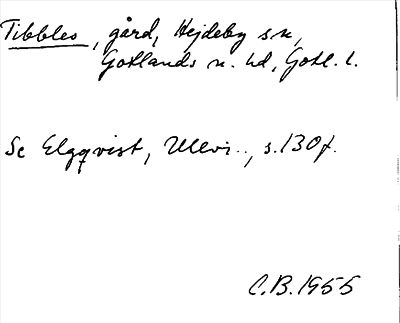 Tibbles, gård, Hejdeby sn,
Gotlands n. hd, Gotl. l.
Se Elgqvist, Ullvi.., s.130f.
C.B.1955